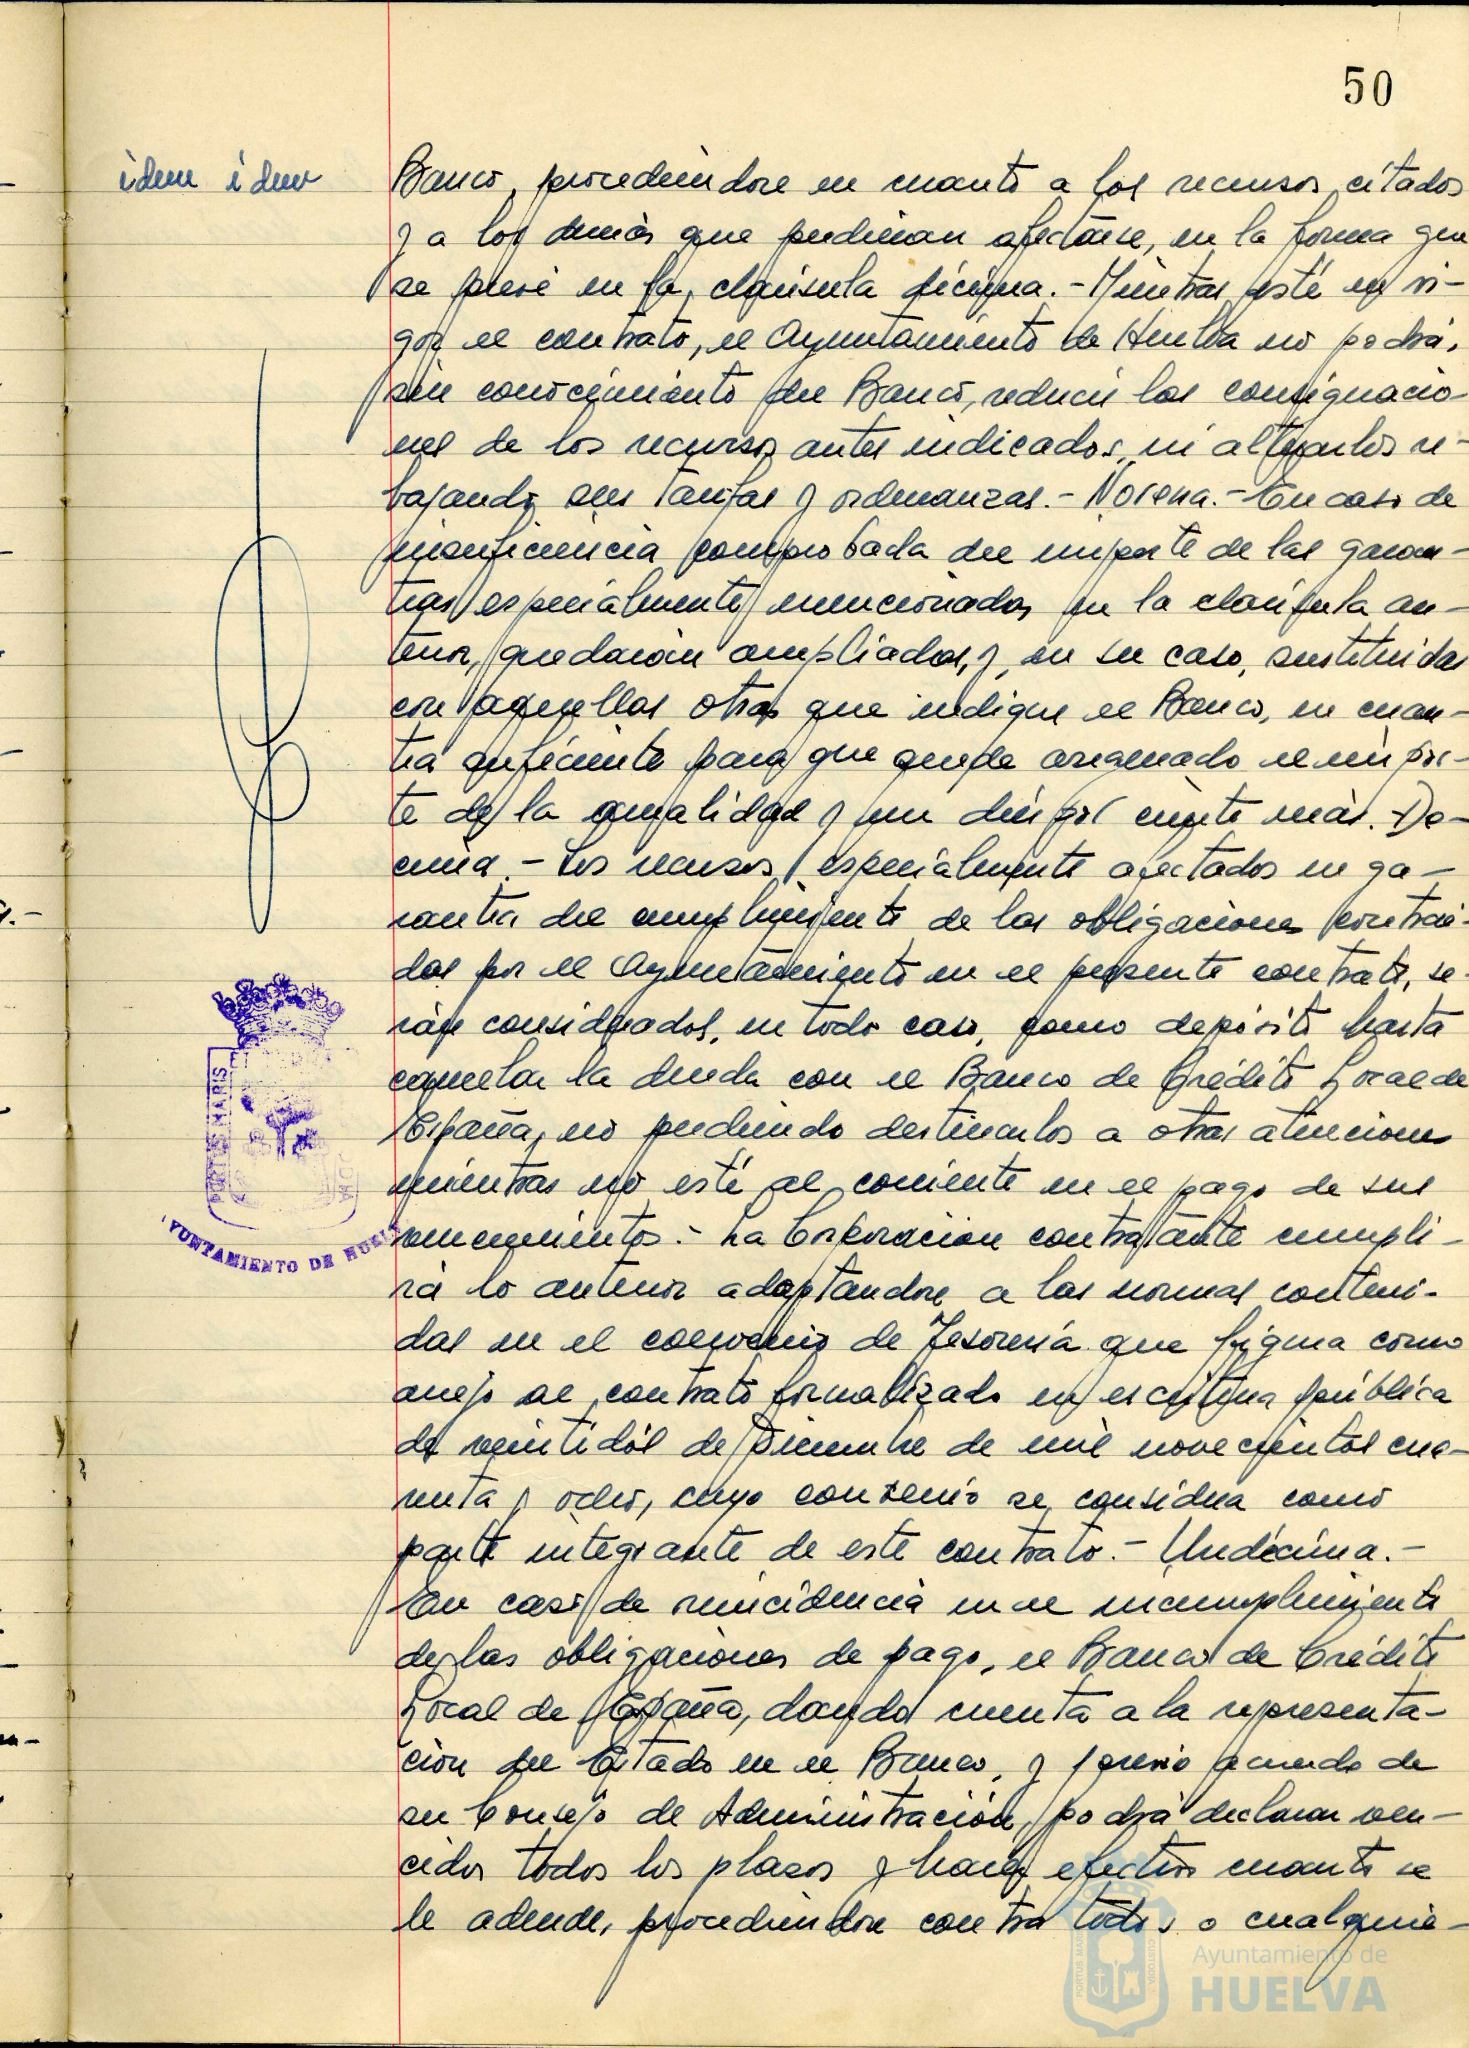 50
idem idem
Banco, procediéndose en cuanto a los recursos citados
y a los demás que pudieran afectarse, en la forma que
se prevé en la cláusula décima.- Mientras esté en vi-
gor el contrato, el Ayuntamiento de Huelva no podrá,
sin conocimiento del Banco, reducir las consignacio-
nes de los recursos antes indicados, ni alterarlos re-
bajando sus tarifas y ordenanzas.- Novena.- En caso de
insuficiencia comprobada del importe de las garan-
tías especialmente mencionadas en la cláusula an-
terior, quedarán ampliadas, y, en su caso, sustituidas
con aquellas otras que indique el Banco, en cuan-
tía suficiente para que quede asegurado el impor-
te de la anualidad y un diez por ciento más.- Dé-
cima.- Los recursos especialmente afectados en ga-
rantía del cumplimiento de las obligaciones contraí-
das por el Ayuntamiento en el presente contrato, se-
rán considerados, en todo caso, como depósito hasta
cancelar la deuda con el Banco de Crédito Local de
España, no pudiendo destinarlos a otras atenciones
mientras no esté al corriente en el pago de sus
vencimientos.- La Corporación contratante cumpli-
rá lo anterior adaptándose a las normas conteni-
das en el convenio de Tesorería que figura como
anejo al contrato formalizado en escritura pública
de veintidós de Diciembre de mil novecientos cua-
renta y ocho, cuyo convenio se considera como
parte integrante de este contrato.- Undécima.-
En caso de reincidencia en el incumplimiento
de las obligaciones de pago, el Banco de Crédito
Local de España, dando cuenta a la representa-
ción del Estado en el Banco, y previo acuerdo de
su Consejo de Administración, podrá declarar ven-
cidos todos los plazos y hacer efectivo cuanto se
le adeude, procediéndose contra todos o cualquie-
PORTUS MARIS
AYUNTAMIENTO DE HUELVA
PORTUS MARIS CUSTODIA
Ayuntamiento de
HUELVA